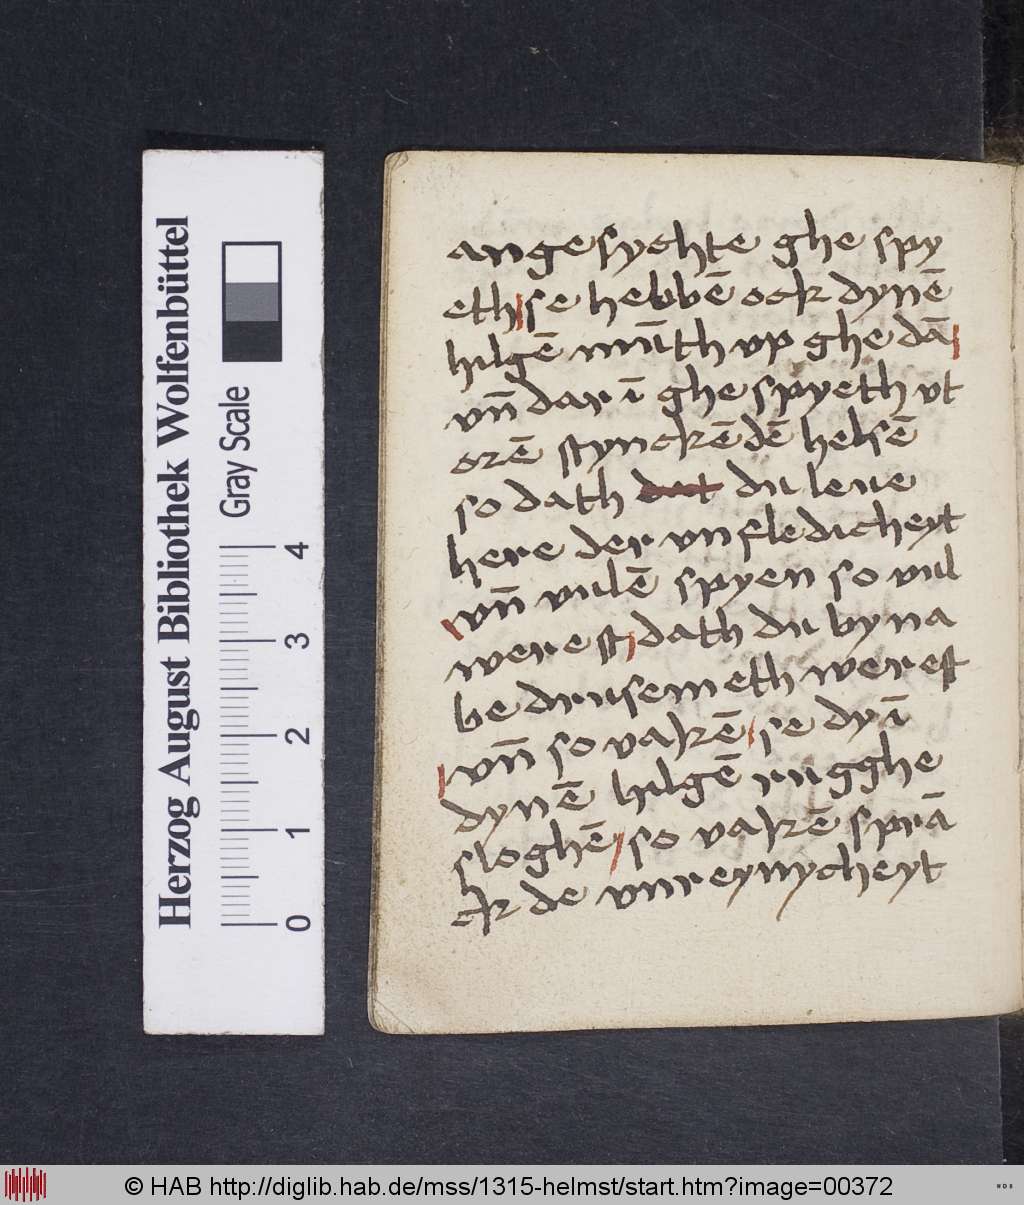 Herzog August Bibliothek Wolfenbüttel
Gray Scale
0 1 2 3 4
angesychte ghe spy
eth se hebbē ock dynē
hilgē mūth vp ghe dā
vn̄ dar ī ghe spyeth vt
orē stynckēdē helsē
so dath dat du leue
here der vnfledicheyt
vn̄ vulē spyen so vul
werest dath du byna
be drusemeth werest
vn̄ so vakē se dy ī
dynē hilgē rugghe
sloghē so vakē sprā
ck de vnreynycheyt
© HAB http://diglib.hab.de/mss/1315-helmst/start.htm?image=00372